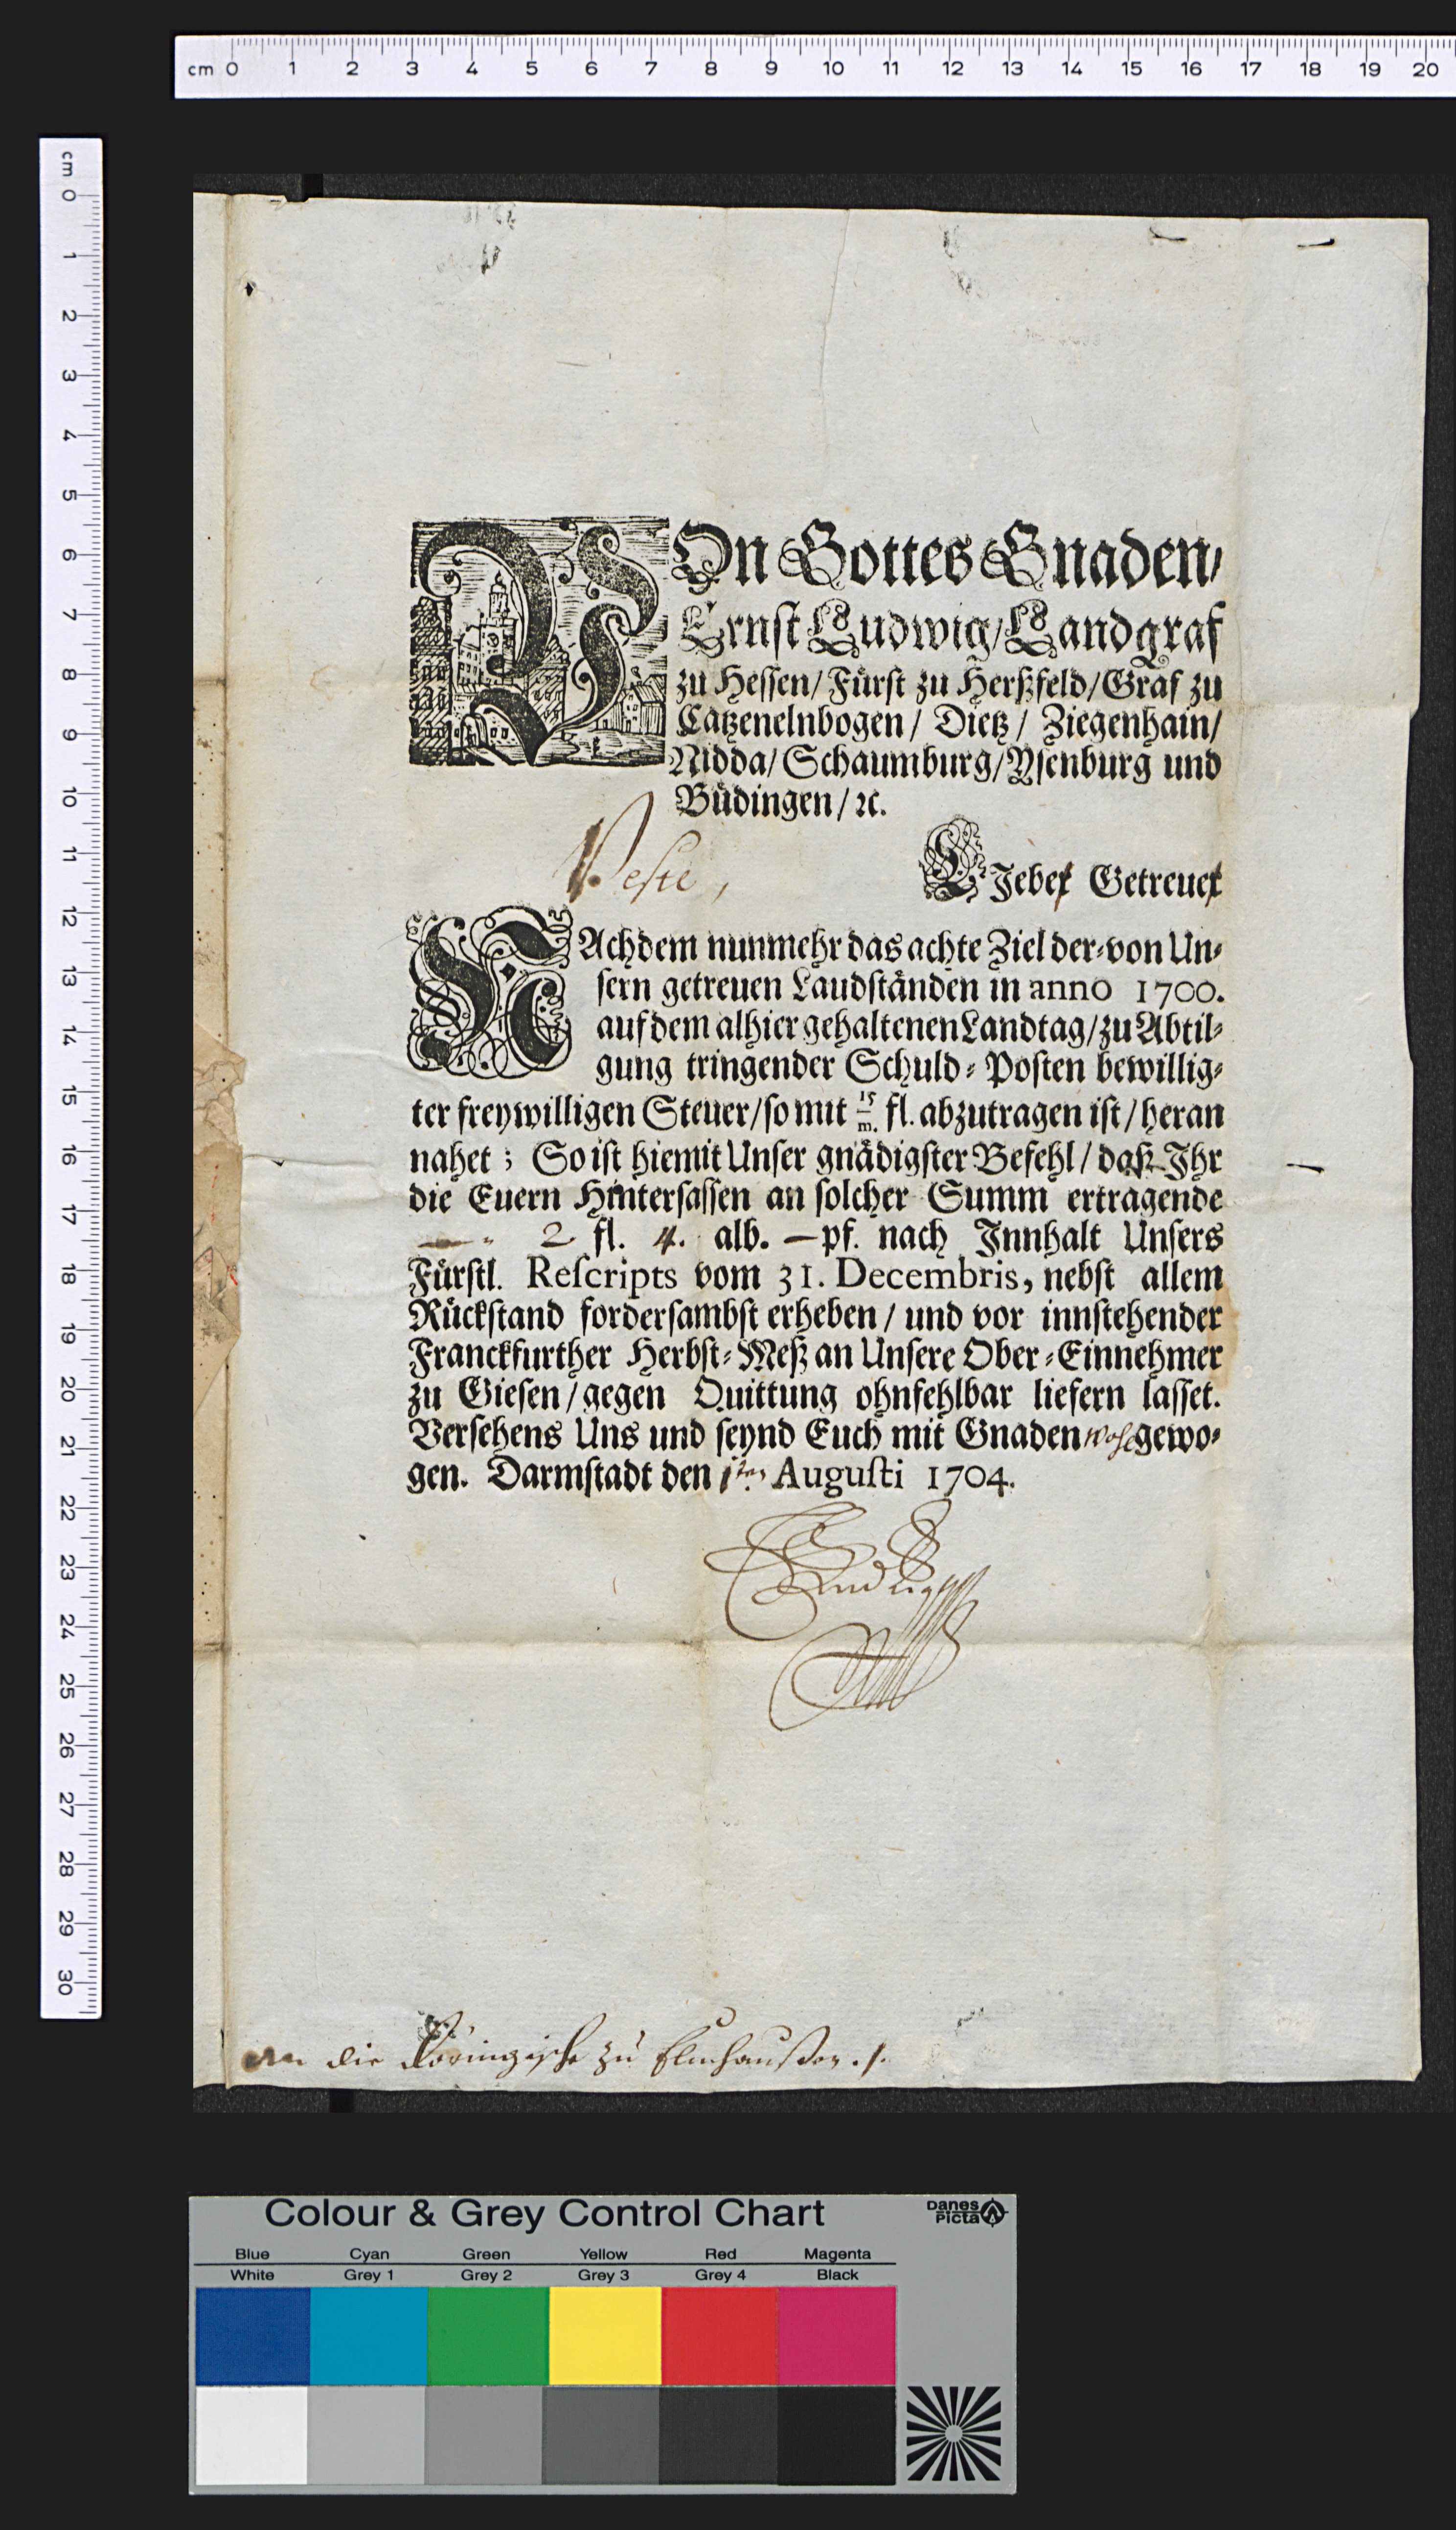 cm 0 1 2 3 4 5 6 7 8 9 10 11 12 13 14 15 16 17 18 19 20
cm 0 1 2 3 4 5 6 7 8 9 10 11 12 13 14 15 16 17 18 19 20 21 22 23 24 25 26 27 28 29 30
VOn Gottes Gnaden/
Ernst Ludwig/Landgraf
zu Hessen/Fürst zu Herßfeld/Graf zu
Catzenelnbogen/ Dietz/ Ziegenhain/
Nidda/Schaumburg/Ysenburg und
Büdingen/ꝛc.
Veste, LJeber Getreuer
NAchdem nunmehr das achte Ziel der-von Un-
sern getreuen Laudständen in anno 1700.
auf dem alhier gehaltenen Landtag/zu Abtil-
gung tringender Schuld-Posten bewillig-
ter freywilligen Steuer/so mit 15/m. fl. abzutragen ist/heran
nahet; So ist hiemit Unser gnädigster Befehl/daß Ihr
die Euern Hintersassen an solcher Summ ertragende
2 fl. 4. alb. — pf. nach Innhalt Unsers
Fürstl. Rescripts vom 31. Decembris, nebst allem
Rückstand fordersambst erheben/und vor innstehender
Franckfurther Herbst-Meß an Unsere Ober-Einnehmer
zu Giesen/gegen Quittung ohnfehlbar liefern lasset.
Versehens Uns und seynd Euch mit Gnaden wohl gewo-
gen. Darmstadt den 1ten Augusti 1704.
An die zu
Colour & Grey Control Chart
Danes
Picta
Blue Cyan Green Yellow Red Magenta
White Grey 1 Grey 2 Grey 3 Grey 4 Black